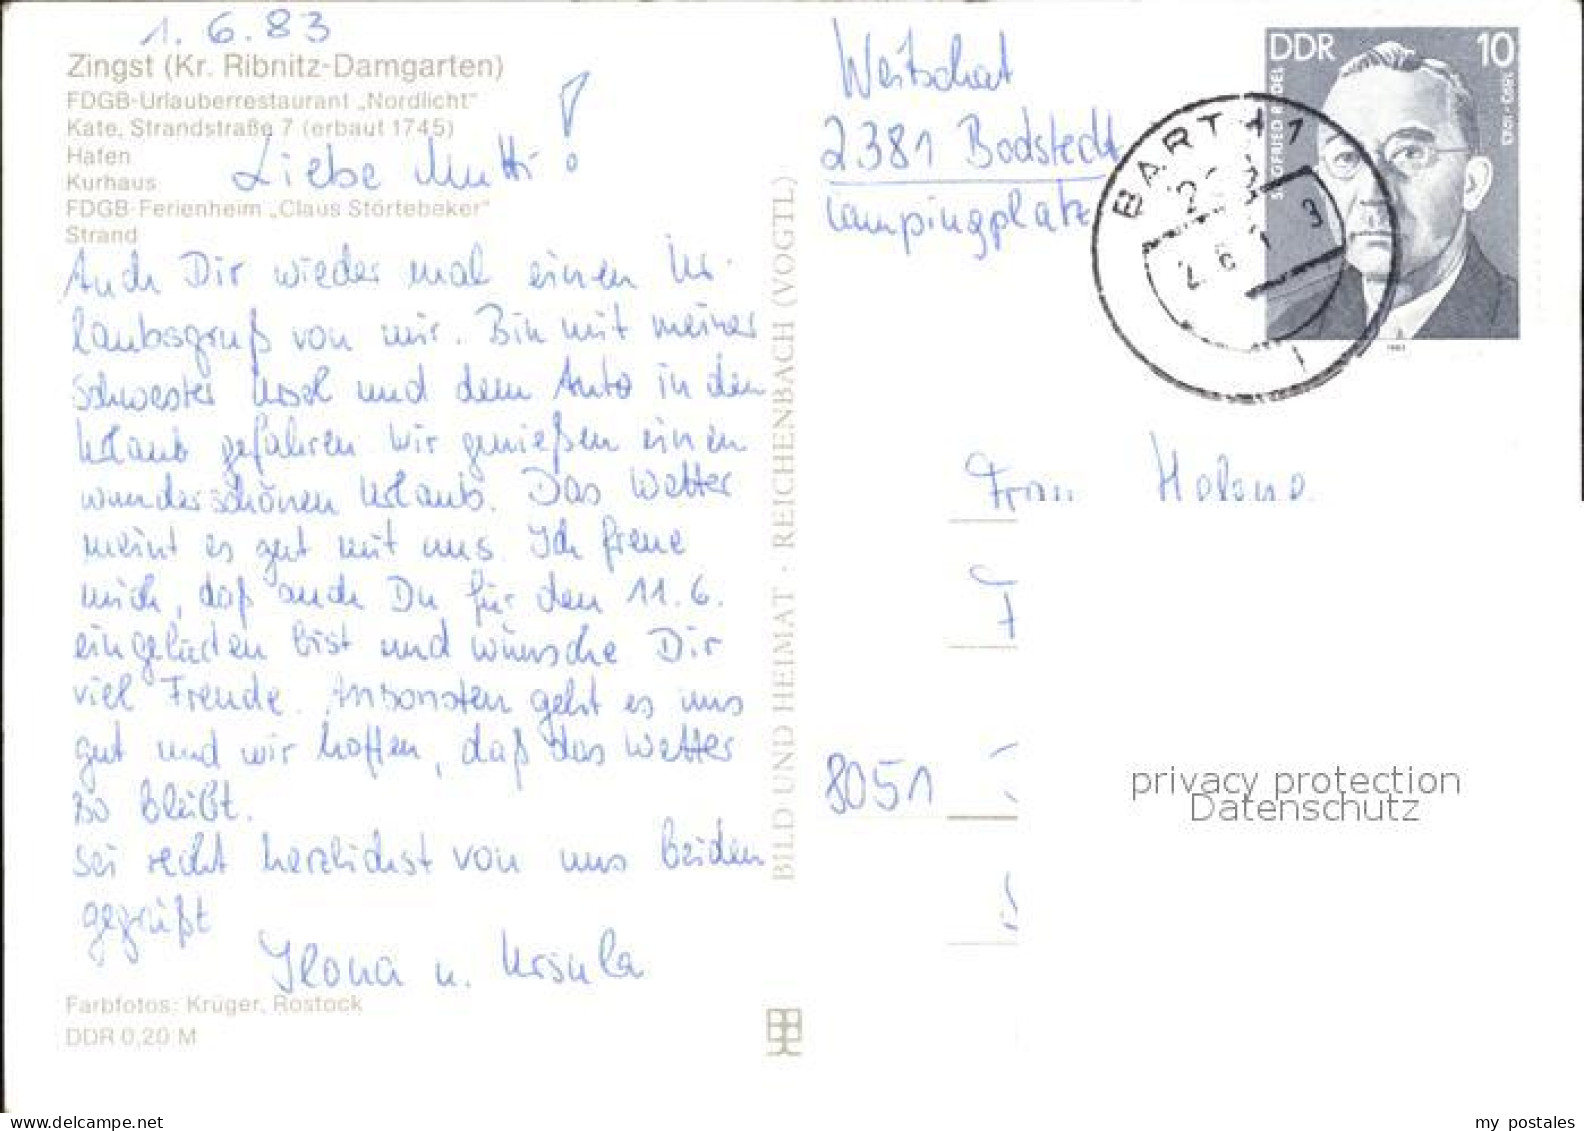 1. 6. 83
Zingst (Kr. Ribnitz-Damgarten)
FDGB-Urlauberrestaurant „Nordlicht"
Kate, Strandstraße 7 (erbaut 1745)
Hafen
Kurhaus
FDGB-Ferienheim „Claus Störtebeker"
Strand
Liebe Mutti!
Auch Dir wieder mal einen Ur-
laubsgruß von mir. Bin mit meiner
Schwester Ursel und dem Auto in den
Urlaub gefahren. Wir genießen einen
wunderschönen Urlaub. Das Wetter
meint es gut mit uns. Ich freue
mich, daß auch Du für den 11.6.
eingeladen bist und wünsche Dir
viel Freude. Ansonsten geht es uns
gut und wir hoffen, daß das Wetter
so bleibt.
Sei recht herzlichst von uns beiden
gegrüßt
Ilona u. Ursula
Farbfotos: Krüger, Rostock
DDR 0,20 M
BILD UND HEIMAT · REICHENBACH (VOGTL)
2381 Bodstedt
Campingplatz
DDR 10
BARTH 1
1983
Frau
8051
privacy protection
Datenschutz
my postales